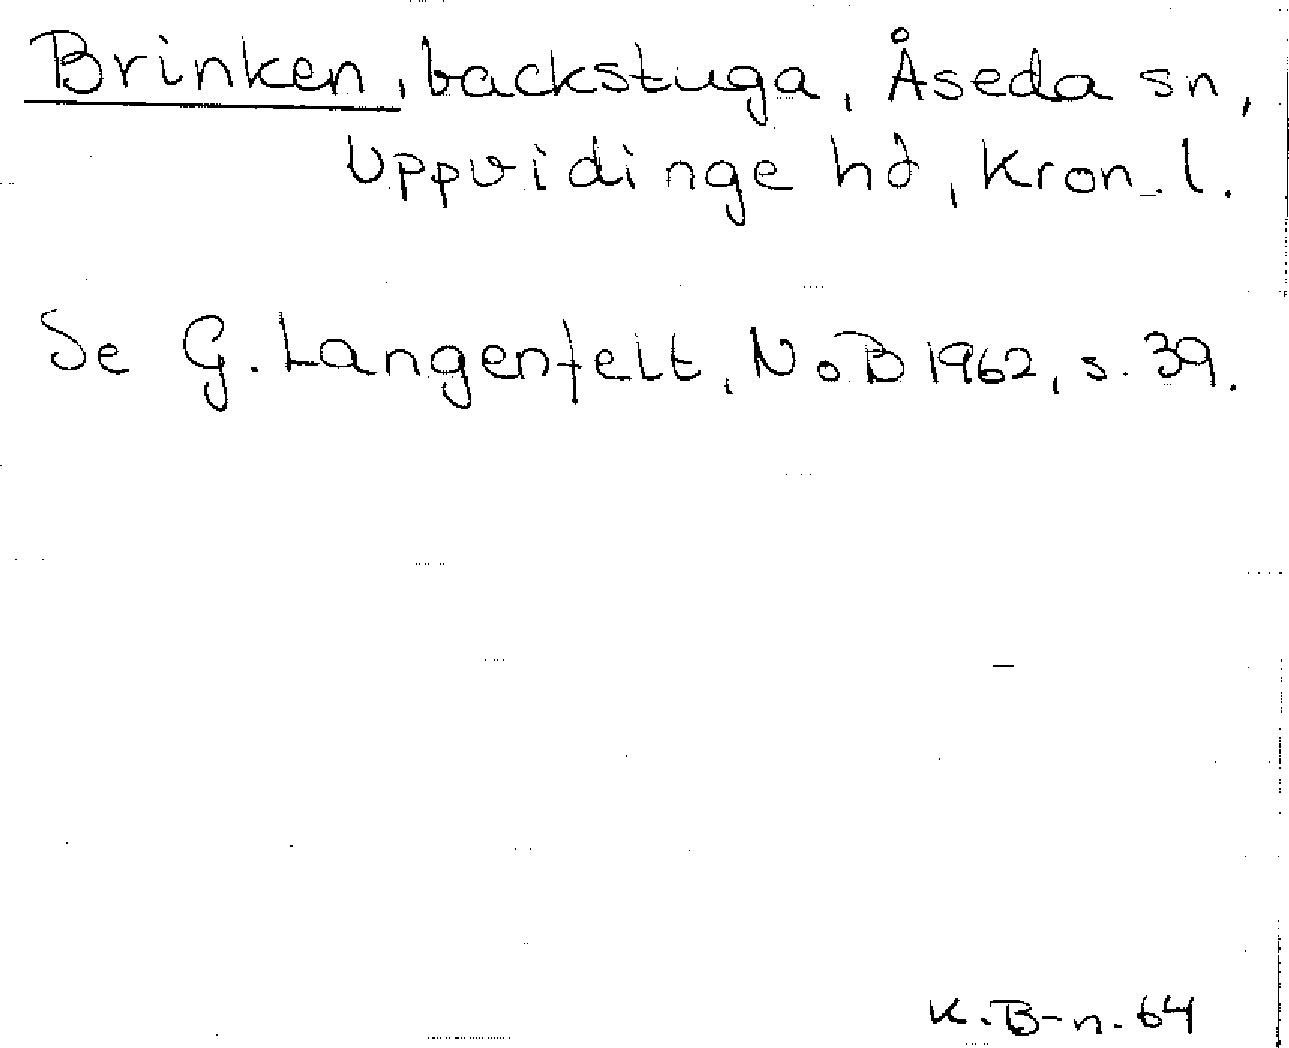 Brinken, backstuga, Åseda sn,
Uppvidinge hd, Kron. l.
Se G. Langenfelt, NoB 1962, s. 39.
K. B-n. 64